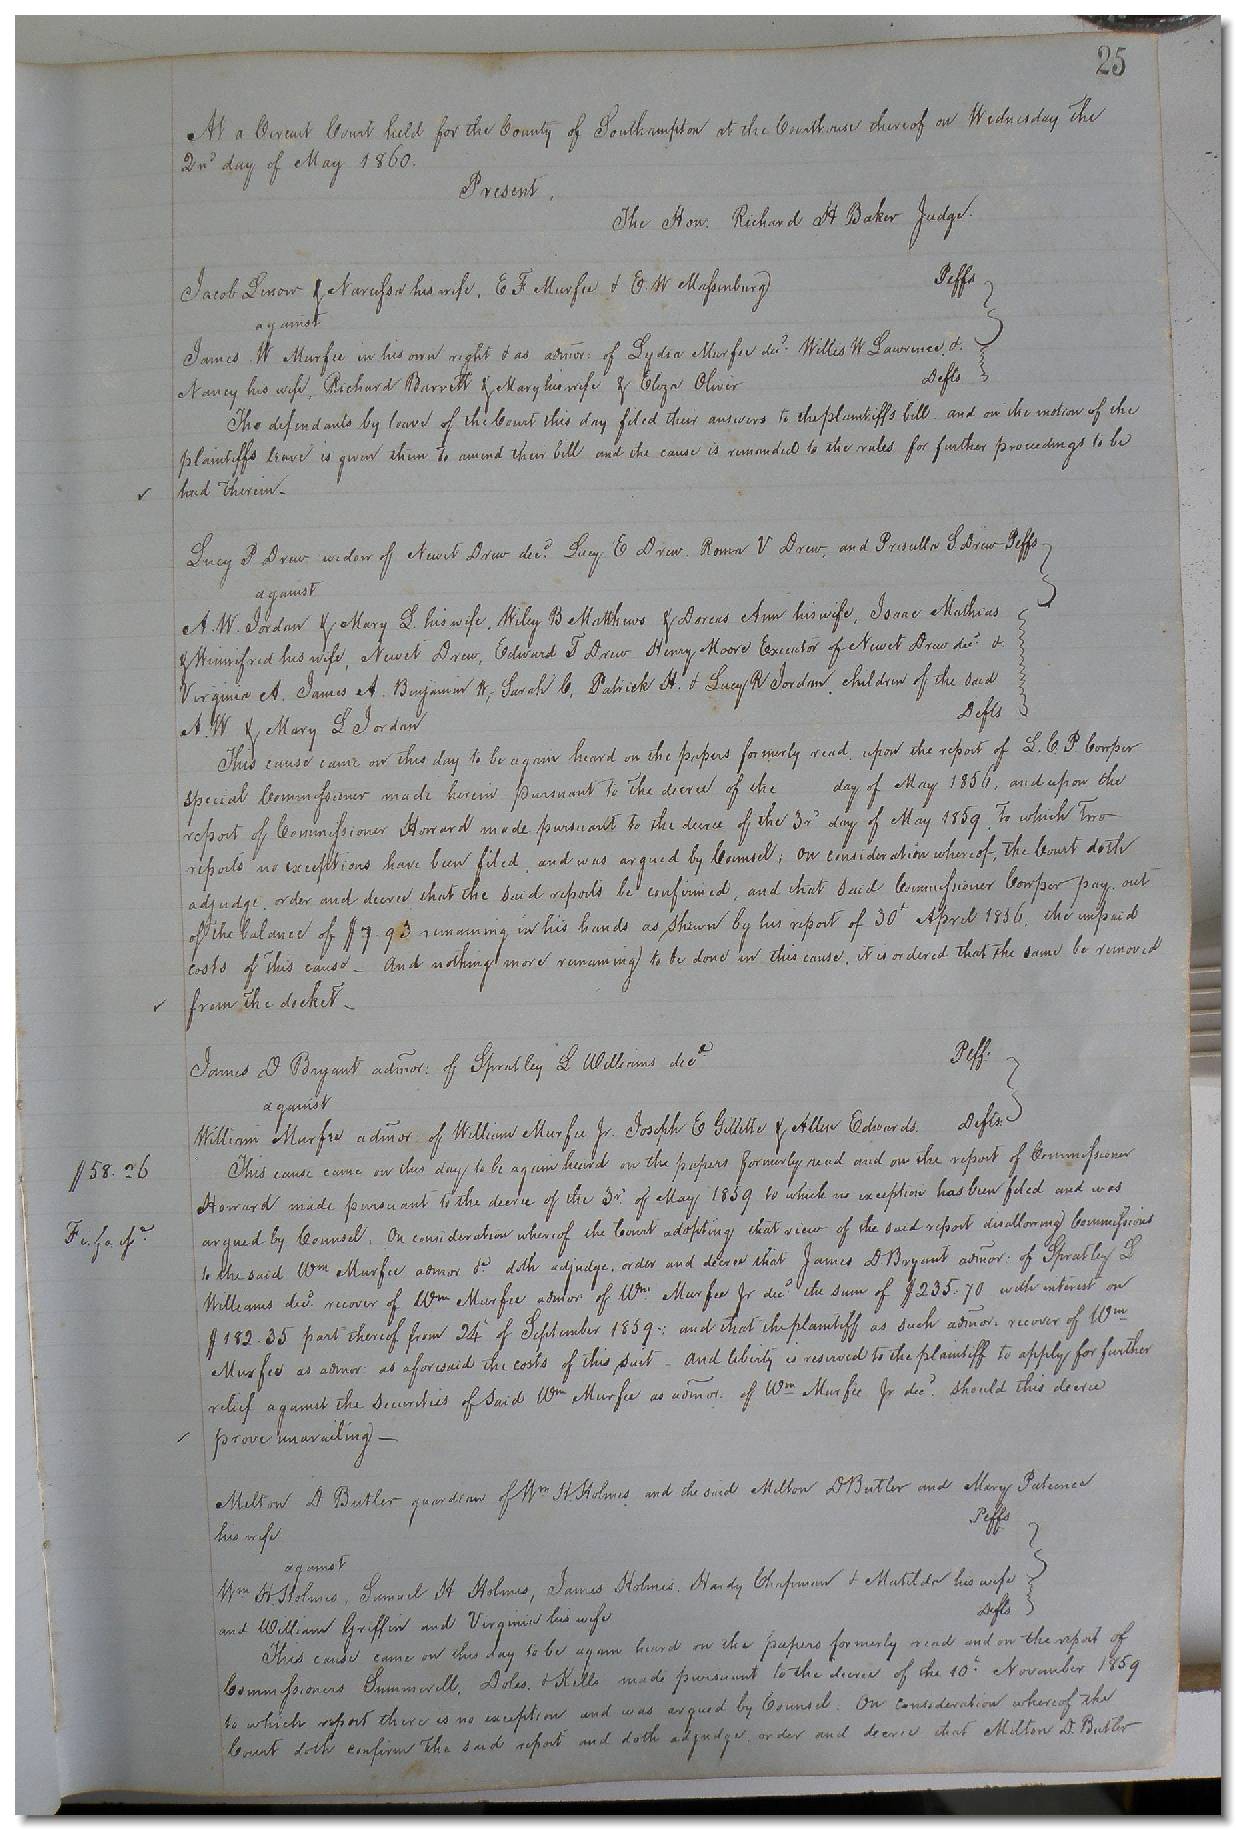 25
At a Circuit Court held for the County of Southampton at the Courthouse thereof on Wednesday the
2nd day of May 1860.
Present,
The Hon. Richard H Baker Judge.
Jacob Lenow & Narcissa his wife, E F Murfee & E. W Massenburg Plffs
against
James W Murfee in his own right & as admor: of Lydia Murfee decd. Willis W Lawrence, &
Nancy his wife, Richard Barrett & Mary his wife & Eliza Oliver Defts
The defendants by leave of the Court this day filed their answers to the plaintiffs bill and on the motion of the
plaintiffs leave is given them to amend their bill and the cause is remanded to the rules for further proceedings to be
had therein_
Lucy P Drew widow of Newit Drew decd. Lucy E Drew. Roma V Drew, and Priscilla S Drew Plffs
against
A. W. Jordan & Mary L. his wife, Wiley B Matthews & Dorcas Ann his wife, Isaac Mathias
& Winnifred his wife, Newit Drew, Edward T Drew Henry Moore Executor of Newit Drew decd. &
Virginia A. James A. Benjamin W, Sarah C, Patrick H. & Lucy R Jordan, children of the said
A. W & Mary L Jordan Defts
This cause came on this day to be again heard on the papers formerly read, upon the report of L. C P Cowper
special Commissioner made herein pursuant to the decree of the day of May 1856, and upon the
report of Commissioner Howard made pursuant to the decree of the 3rd day of May 1859, to which two
reports no exceptions have been filed, and was argued by Counsel; On consideration whereof, the Court doth
adjudge, order and decree that the said reports be confirmed, and that said Commissioner Cowper pay, out
of the balance of $7 93 remaining in his hands as shewn by his report of 30t April 1856, the unpaid
costs of this cause_ And nothing more remaining to be done in this cause, it is ordered that the same be removed
from the docket_
James D Bryant admor: of Spratley L Williams decd Plff.
against
William Murfee admor of William Murfee Jr. Joseph E Gillette & Allen Edwards. Defts.
$58.26
This cause came on this day to be again heard on the papers formerly read and on the report of Commissioner
Howard made pursuant to the decree of the 3rd of May 1859 to which no exception has been filed and was
Fi. fa.
argued by Counsel. On consideration whereof the Court adopting that view of the said report disallowing Commissions
to the said Wm Murfee admor &c doth adjudge, order and decree that James D Bryant admor: of Spratley L
Williams decd. recover of Wm Murfee admor of Wm. Murfee Jr decd. the sum of $235.70 with interest on
$182.35 part thereof from 24 of September 1859.; and that the plaintiff as such admor. recover of Wm
Murfee as admor as aforesaid the costs of this suit_ And liberty is reserved to the plaintiff to apply for further
relief against the securities of said Wm Murfee as admor. of Wm Murfee Jr decd. should this decree
prove unavailing_
Milton D Butler guardian of Wm H Holmes, and the said Milton D Butler and Mary Patience
his wife Plffs
against
Wm H Holmes, Samuel H Holmes, James Holmes, Hardy Chapman & Matilda his wife
and William Griffin and Virginia his wife Defts
This cause came on this day to be again heard on the papers formerly read and on the report of
Commissioners Summerell, Doles, & Kello made pursuant to the decree of the 10t November 1859
to which report there is no exception and was argued by Counsel: On consideration whereof the
Court doth confirm the said report and doth adjudge order and decree that Milton D. Butler